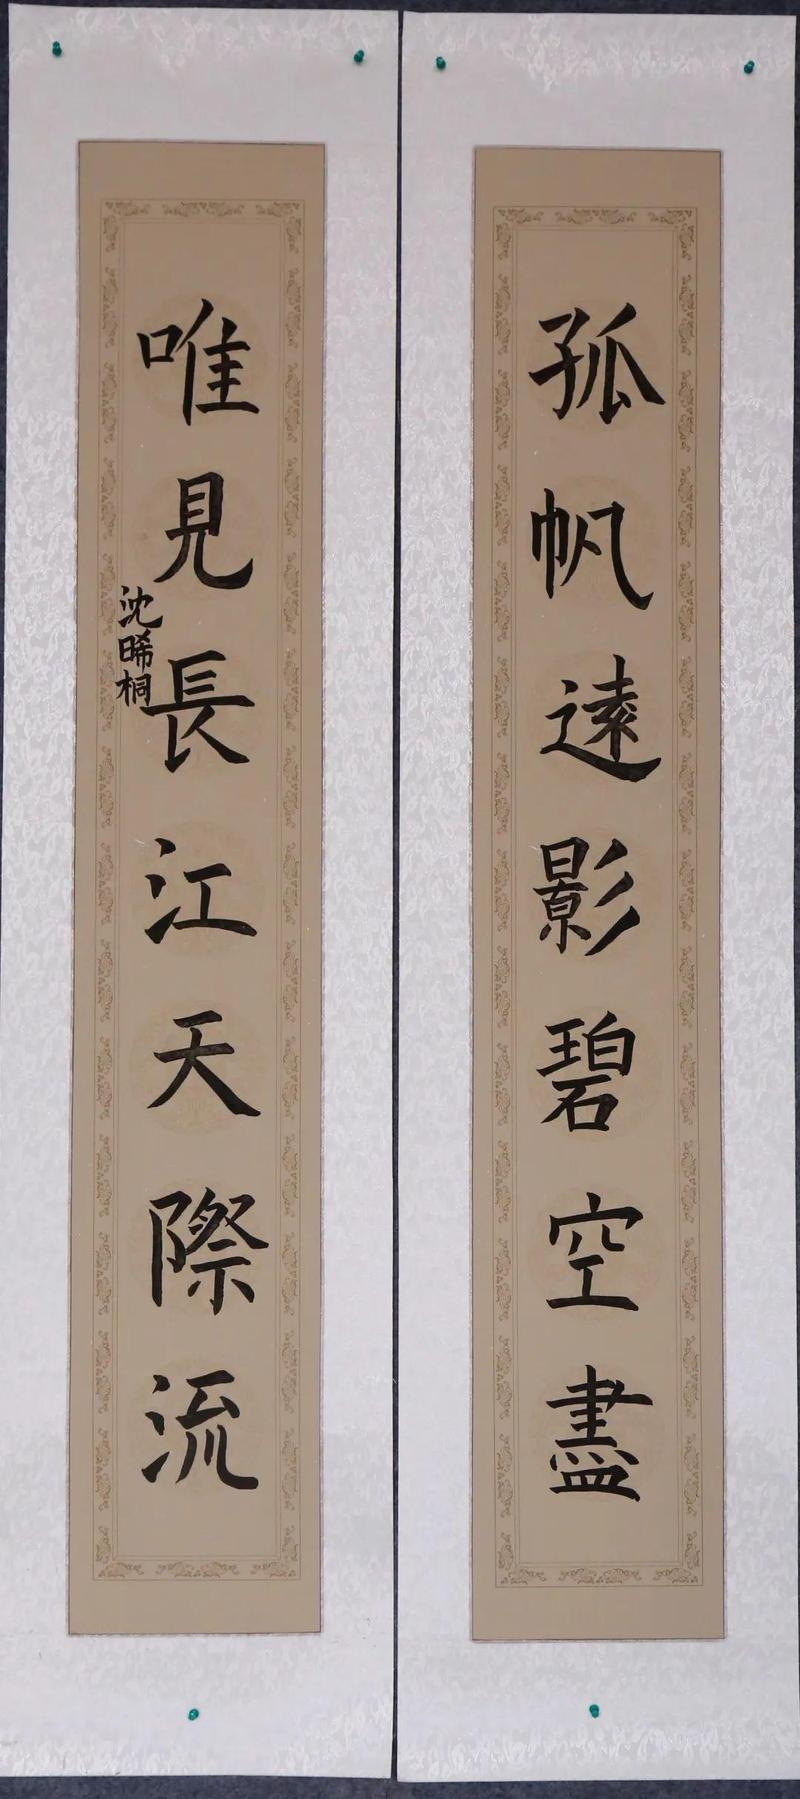 孤帆遠影碧空盡
唯見長江天際流
沈晞桐